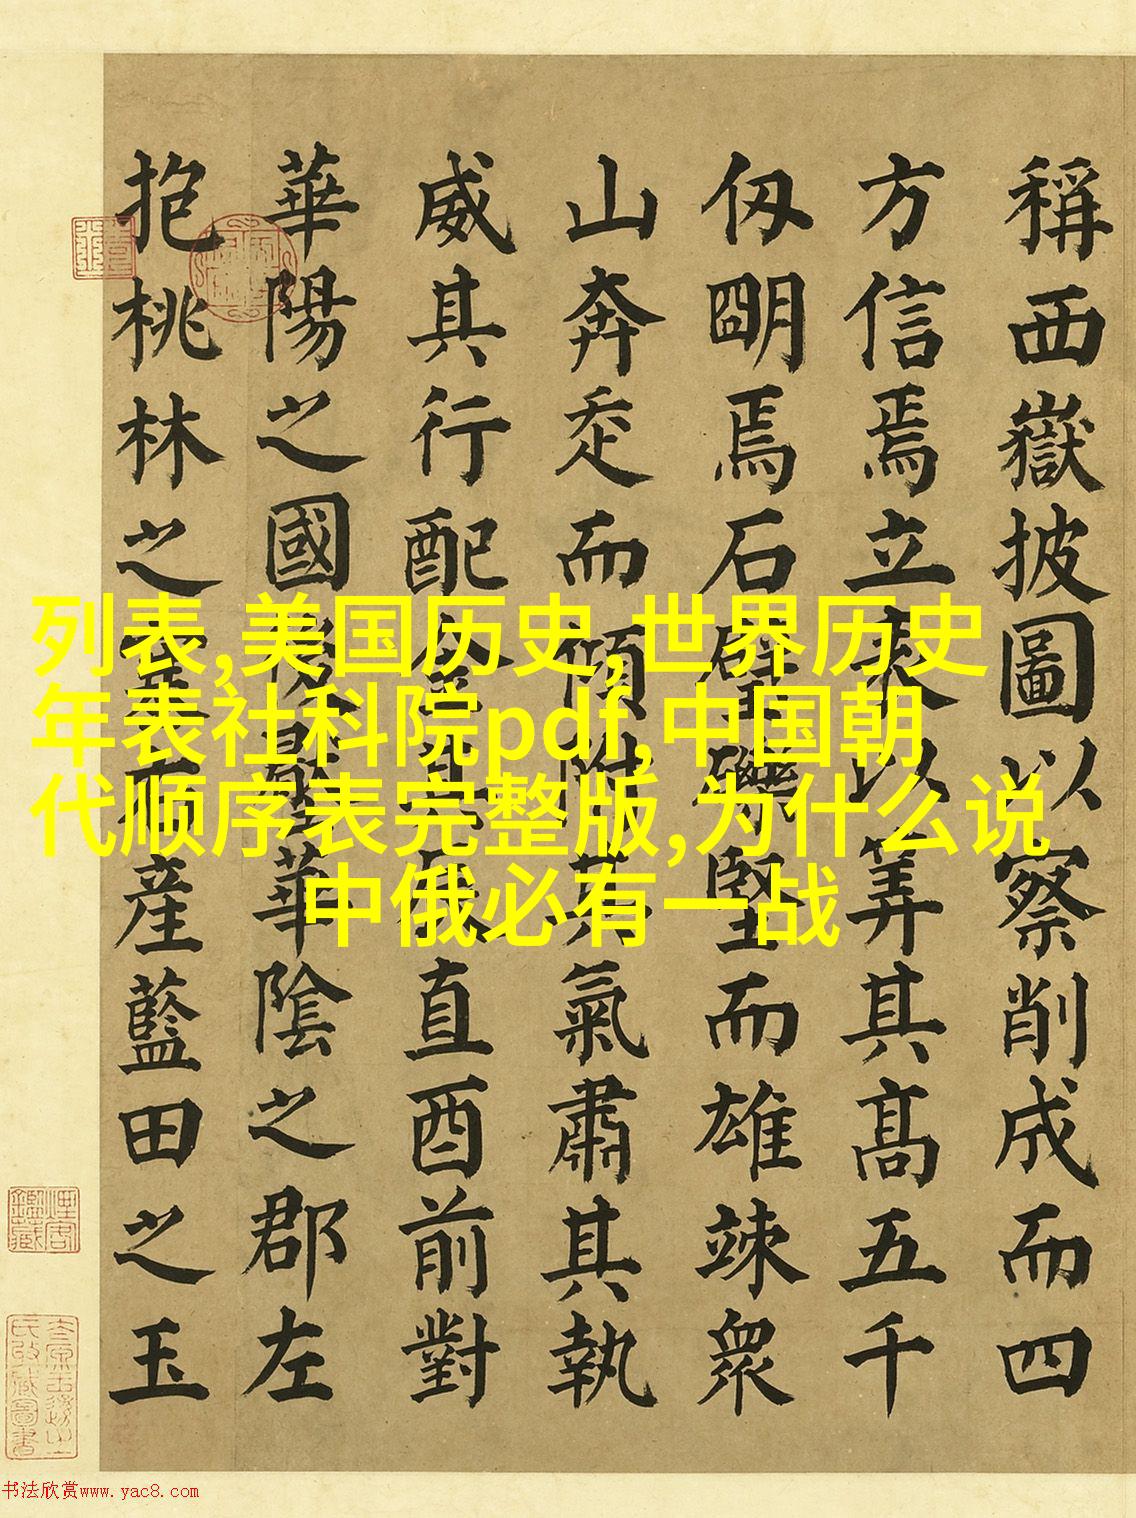 列表,美国历史,世界历史
年表社科院pdf,中国朝
代顺序表完整版,为什么说
中俄必有一战
稱西嶽披圖以察削成而四
方信焉立表以筭其高五千
仭朙焉石壁竪而雄竦衆
山奔走而傾附其氣肅其執
威其行配金其辰直酉前對
華陽之國後壓華陰之郡左
抱桃林之塞産藍田之玉
书法欣赏www.yac8.com